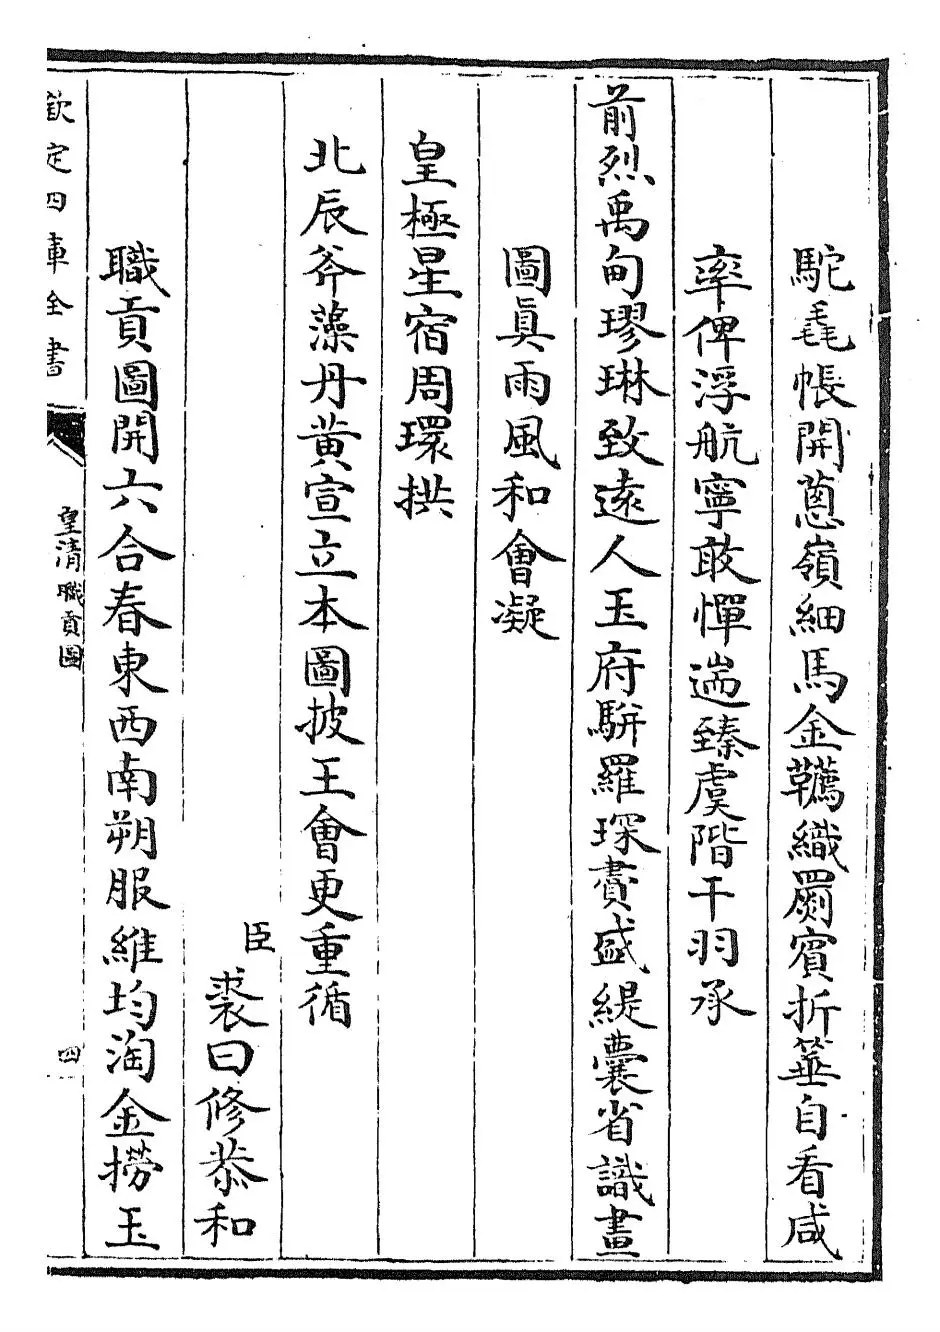 駝毳帳開蔥嶺細馬金韉織罽賓折箠自看咸
率俾浮航寧敢憚遄臻虞階干羽承
前烈禹甸璆琳致遠人玉府駢羅琛賮盛緹囊省識畫
圖眞雨風和會凝
皇極星宿周環拱
北辰斧藻丹黄宣立本圖披王會更重循
臣裘曰修恭和
職貢圖開六合春東西南朔服維均淘金撈玉
欽定四庫全書
皇清職貢圖
四